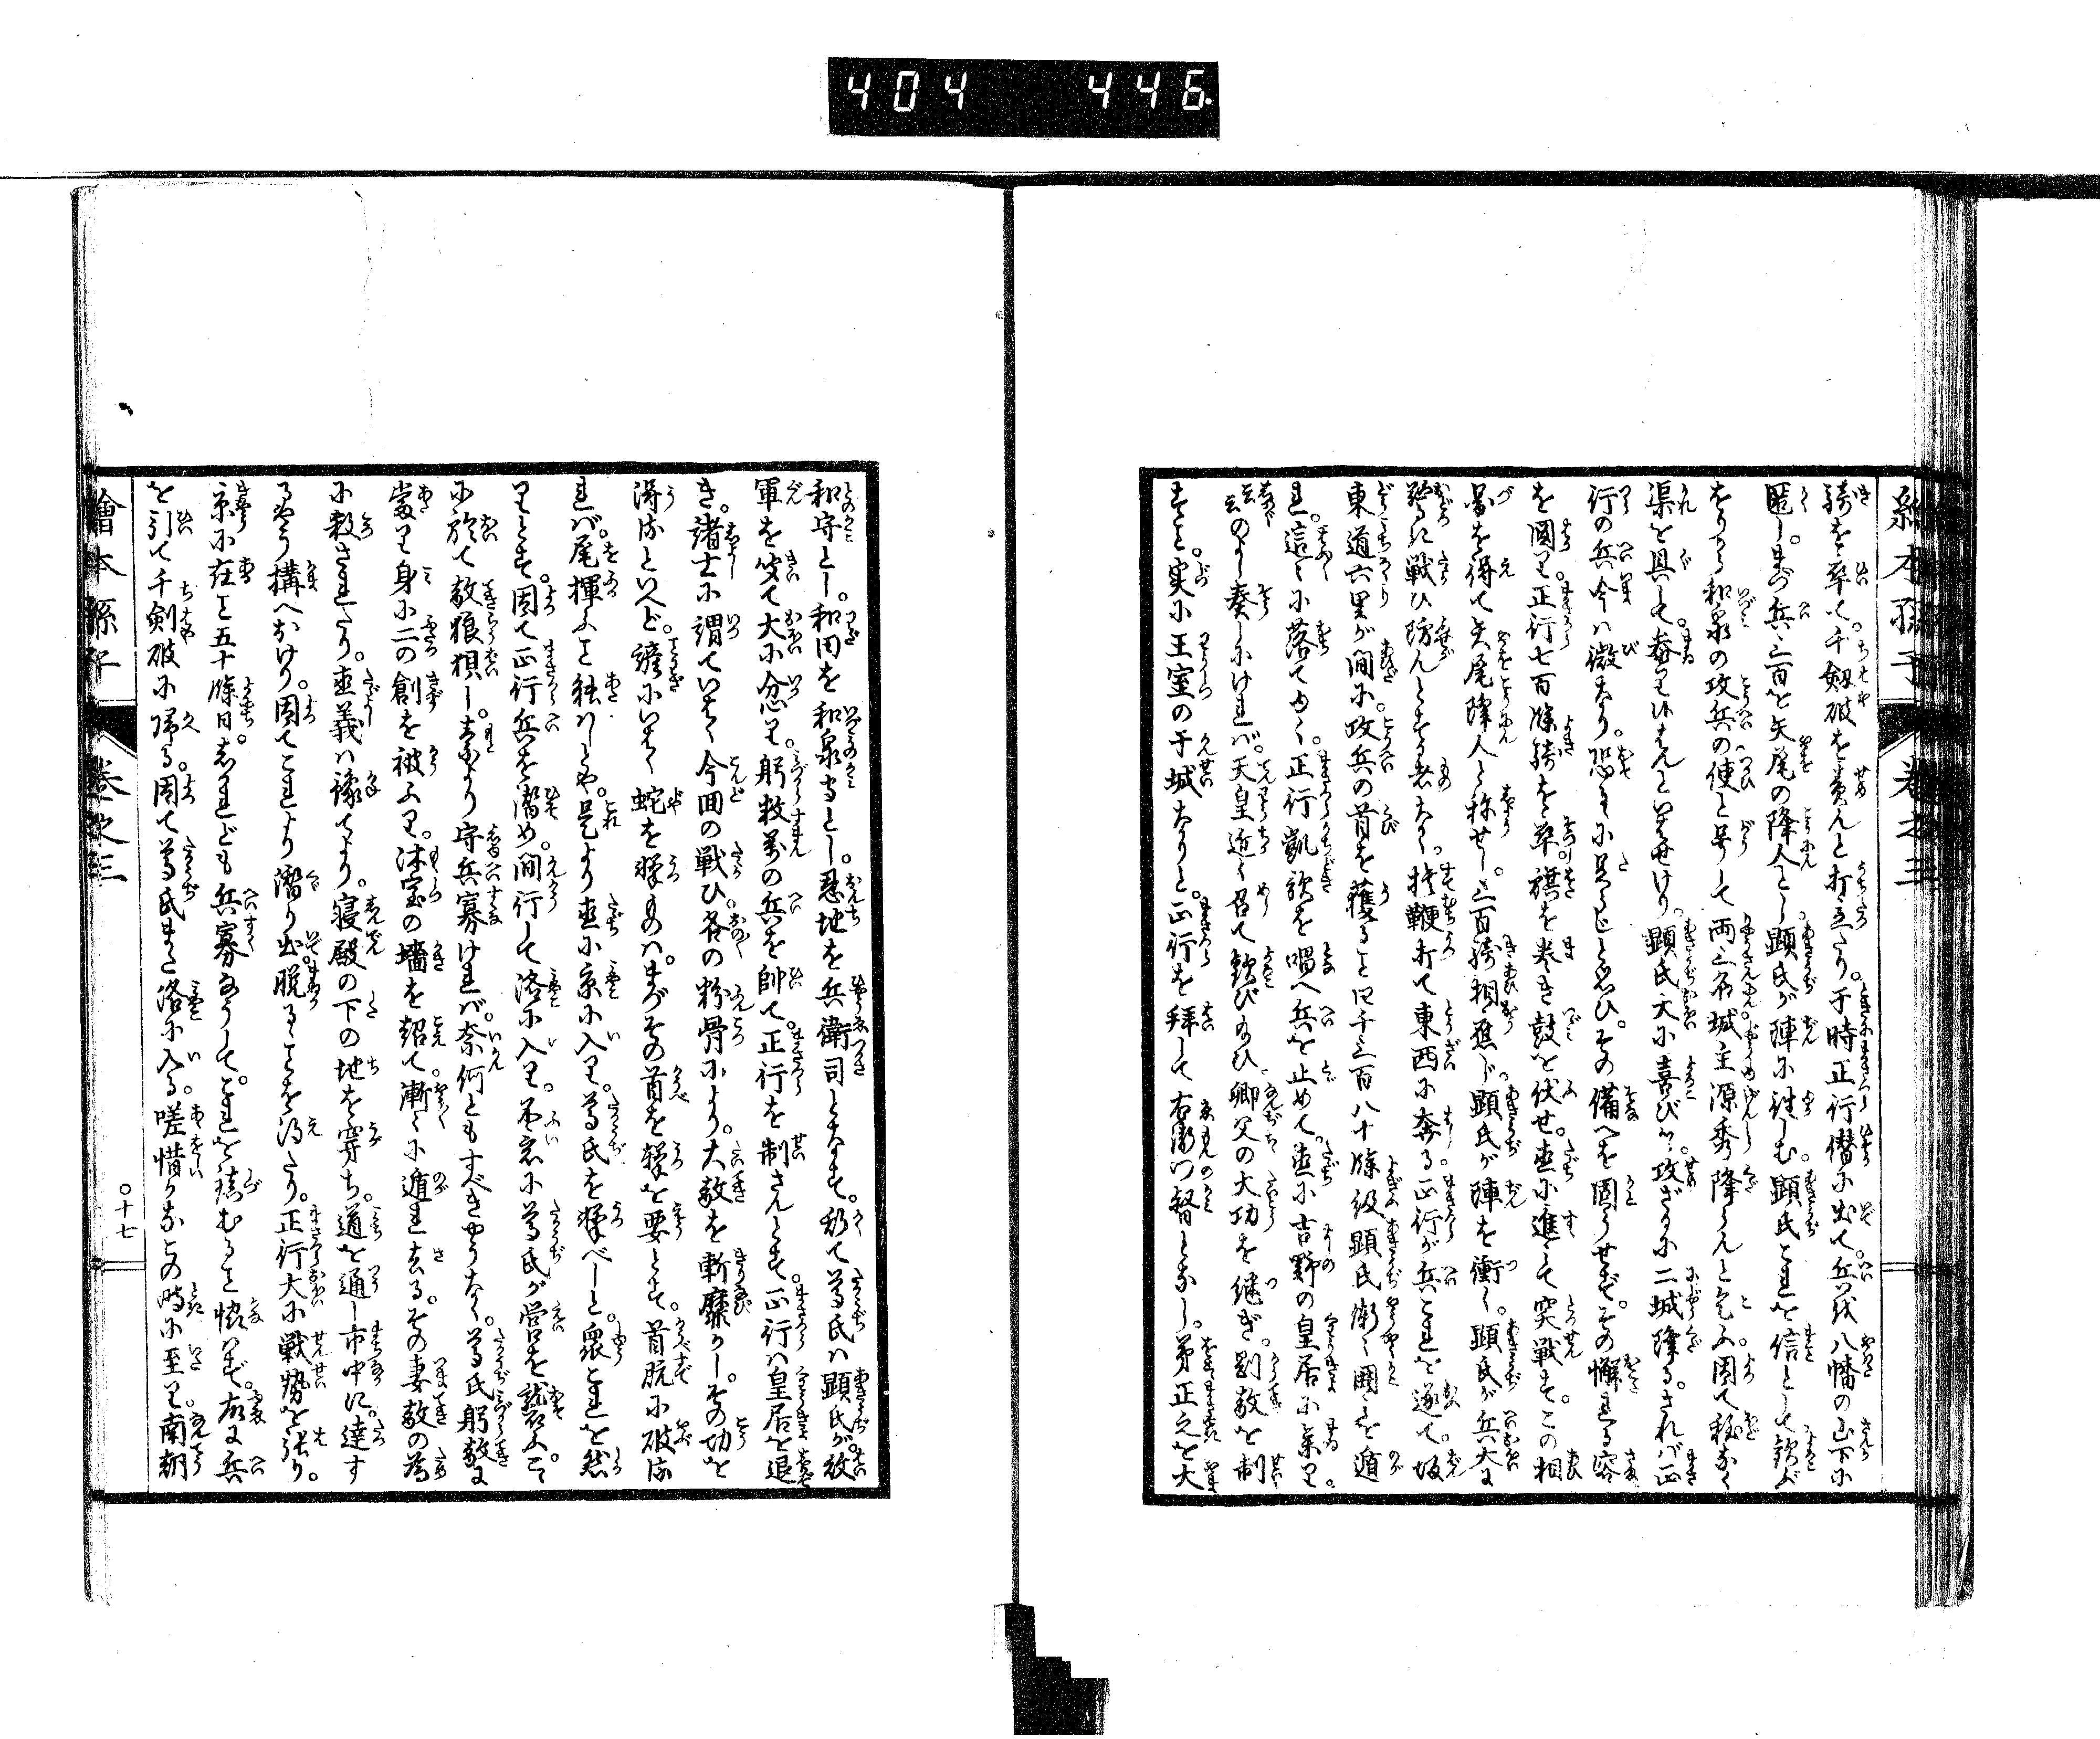 404 446
絵本孫子 巻之三
騎を率て。千剱破を責んと打立たり。于時正行僣に出て。兵を八幡の山下に
匿し。まづ兵三百を矢尾の降人とし。顕氏が陣に紿しむ。顕氏これを信として歓び
をりから和泉の攻兵の使と号して両三ヶ城主源秀降らんと乞ふ。因て程なく
渠を具して参り候はんといはせけり。顕氏大に喜び。攻ざるに二城降る。されバ正
行の兵今ハ微なり。恐るゝに足らじと思ひ。その備へを固うせず。その懈れる容
を圖り。正行七百餘騎を率。旗を巻き鼓を伏せ。直に進で突戦す。この相
圖を得て矢尾降人と称せし。三百騎相應じ。顕氏が陣を衝く。顕氏が兵大に
驚き戦ひ防んとする者なく。捨鞭打て東西に奔る。正行が兵これを逐て。坂
東道六里が間に。攻兵の首を獲ること四千三百八十餘級顕氏漸く囲を遁
れ。這々に落てゆく。正行凱歌を唱へ兵を止めて。直に吉野の皇居に参り。
云云のよし奏しけれバ。天皇近く召て歓び給ひ。卿父の大功を継ぎ。剧敵を制
すこと。実に王室の干城なりと。正行を拝して右衛門督となし。弟正之を大
和守とし。和田を和泉守とし。恩地を兵衛司となす。扨て尊氏ハ顕氏が敗
軍を聞て大に忿り。躬数萬の兵を帥て。正行を制さんとす。正行ハ皇居を退
き。諸士に謂ていはく今回の戦ひ。各の粉骨により。大敵を斬靡かし。その功を
得るといへど。諺にいはく蛇を撃ものハ。まづその首を撃を要とす。首既に破る
れバ。尾揮ふこと能ハじとや。是より直に京に入り。尊氏を撃べしと。衆これを然
りとす。因て正行兵を潜め。間行して洛に入り。不意に尊氏が営を襲ふ。こゝ
に於て敵狼狽し。素より守兵寡けれバ。奈何ともすべきやうなく。尊氏躬敵に
當り身に二の創を被ふり。沐室の墻を超て漸々に遁れ去る。その妻敵の為
に殺されたり。直義ハ豫てより。寝殿の下の地を穿ち。道を通し市中に。達す
るやう構へおけり。因てこれより潜り出。脱るゝことを得たり。正行大に戦勢を張り。
京に在こと五十餘日。されども兵寡なうして。これを禁むること能はず。故に兵
を引て千剣破に帰る。因て尊氏また洛に入る。嗟惜かなこの時に至り。南朝
繪本孫子 巻之三 〇十七